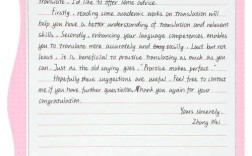 translate. I'd like to offer some advice.
Firstly, reading some academic works on translation will
help you have a better understanding of translation and relevant
skills. Secondly, enhancing your language competences enables
you to translate more accurately and easily. Last but not
least, it is beneficial to practice translating as much as you
can. Just as the old saying goes, "Practice makes perfect."
Hopefully these suggestions are useful. Feel free to contact
me if you have further questions. Thank you again for your
congratulation.
Yours sincerely,
Zhang Wei